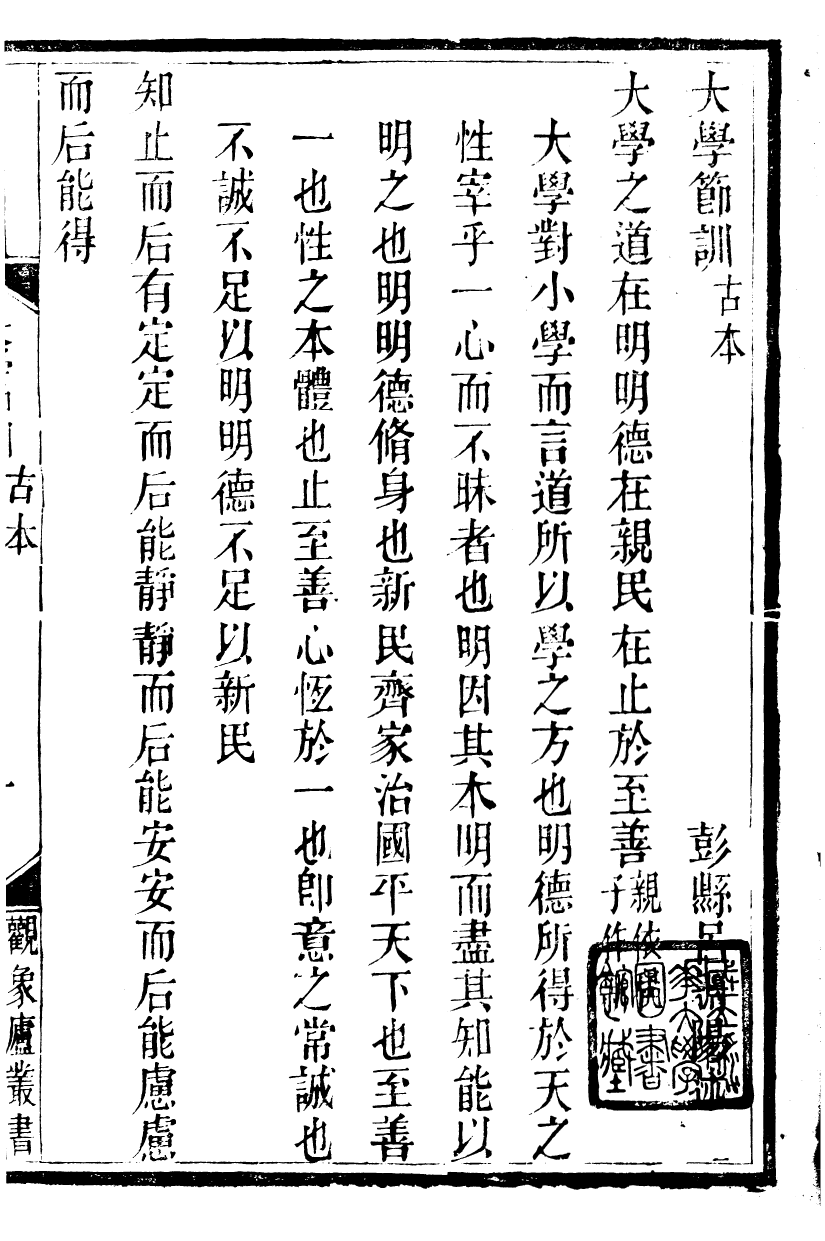 大學節訓古本
彭縣呂
大學之道在明明德在親民在止於至善親依
子作
大學對小學而言道所以學之方也明德所得於天之
性宰乎一心而不昧者也明因其本明而盡其知能以
明之也明明德脩身也新民齊家治國平天下也至善
一也性之本體也止至善心恆於一也卽意之常誠也
不誠不足以明明德不足以新民
知止而后有定定而后能靜靜而后能安安而后能慮慮
而后能得
古本
觀象廬叢書